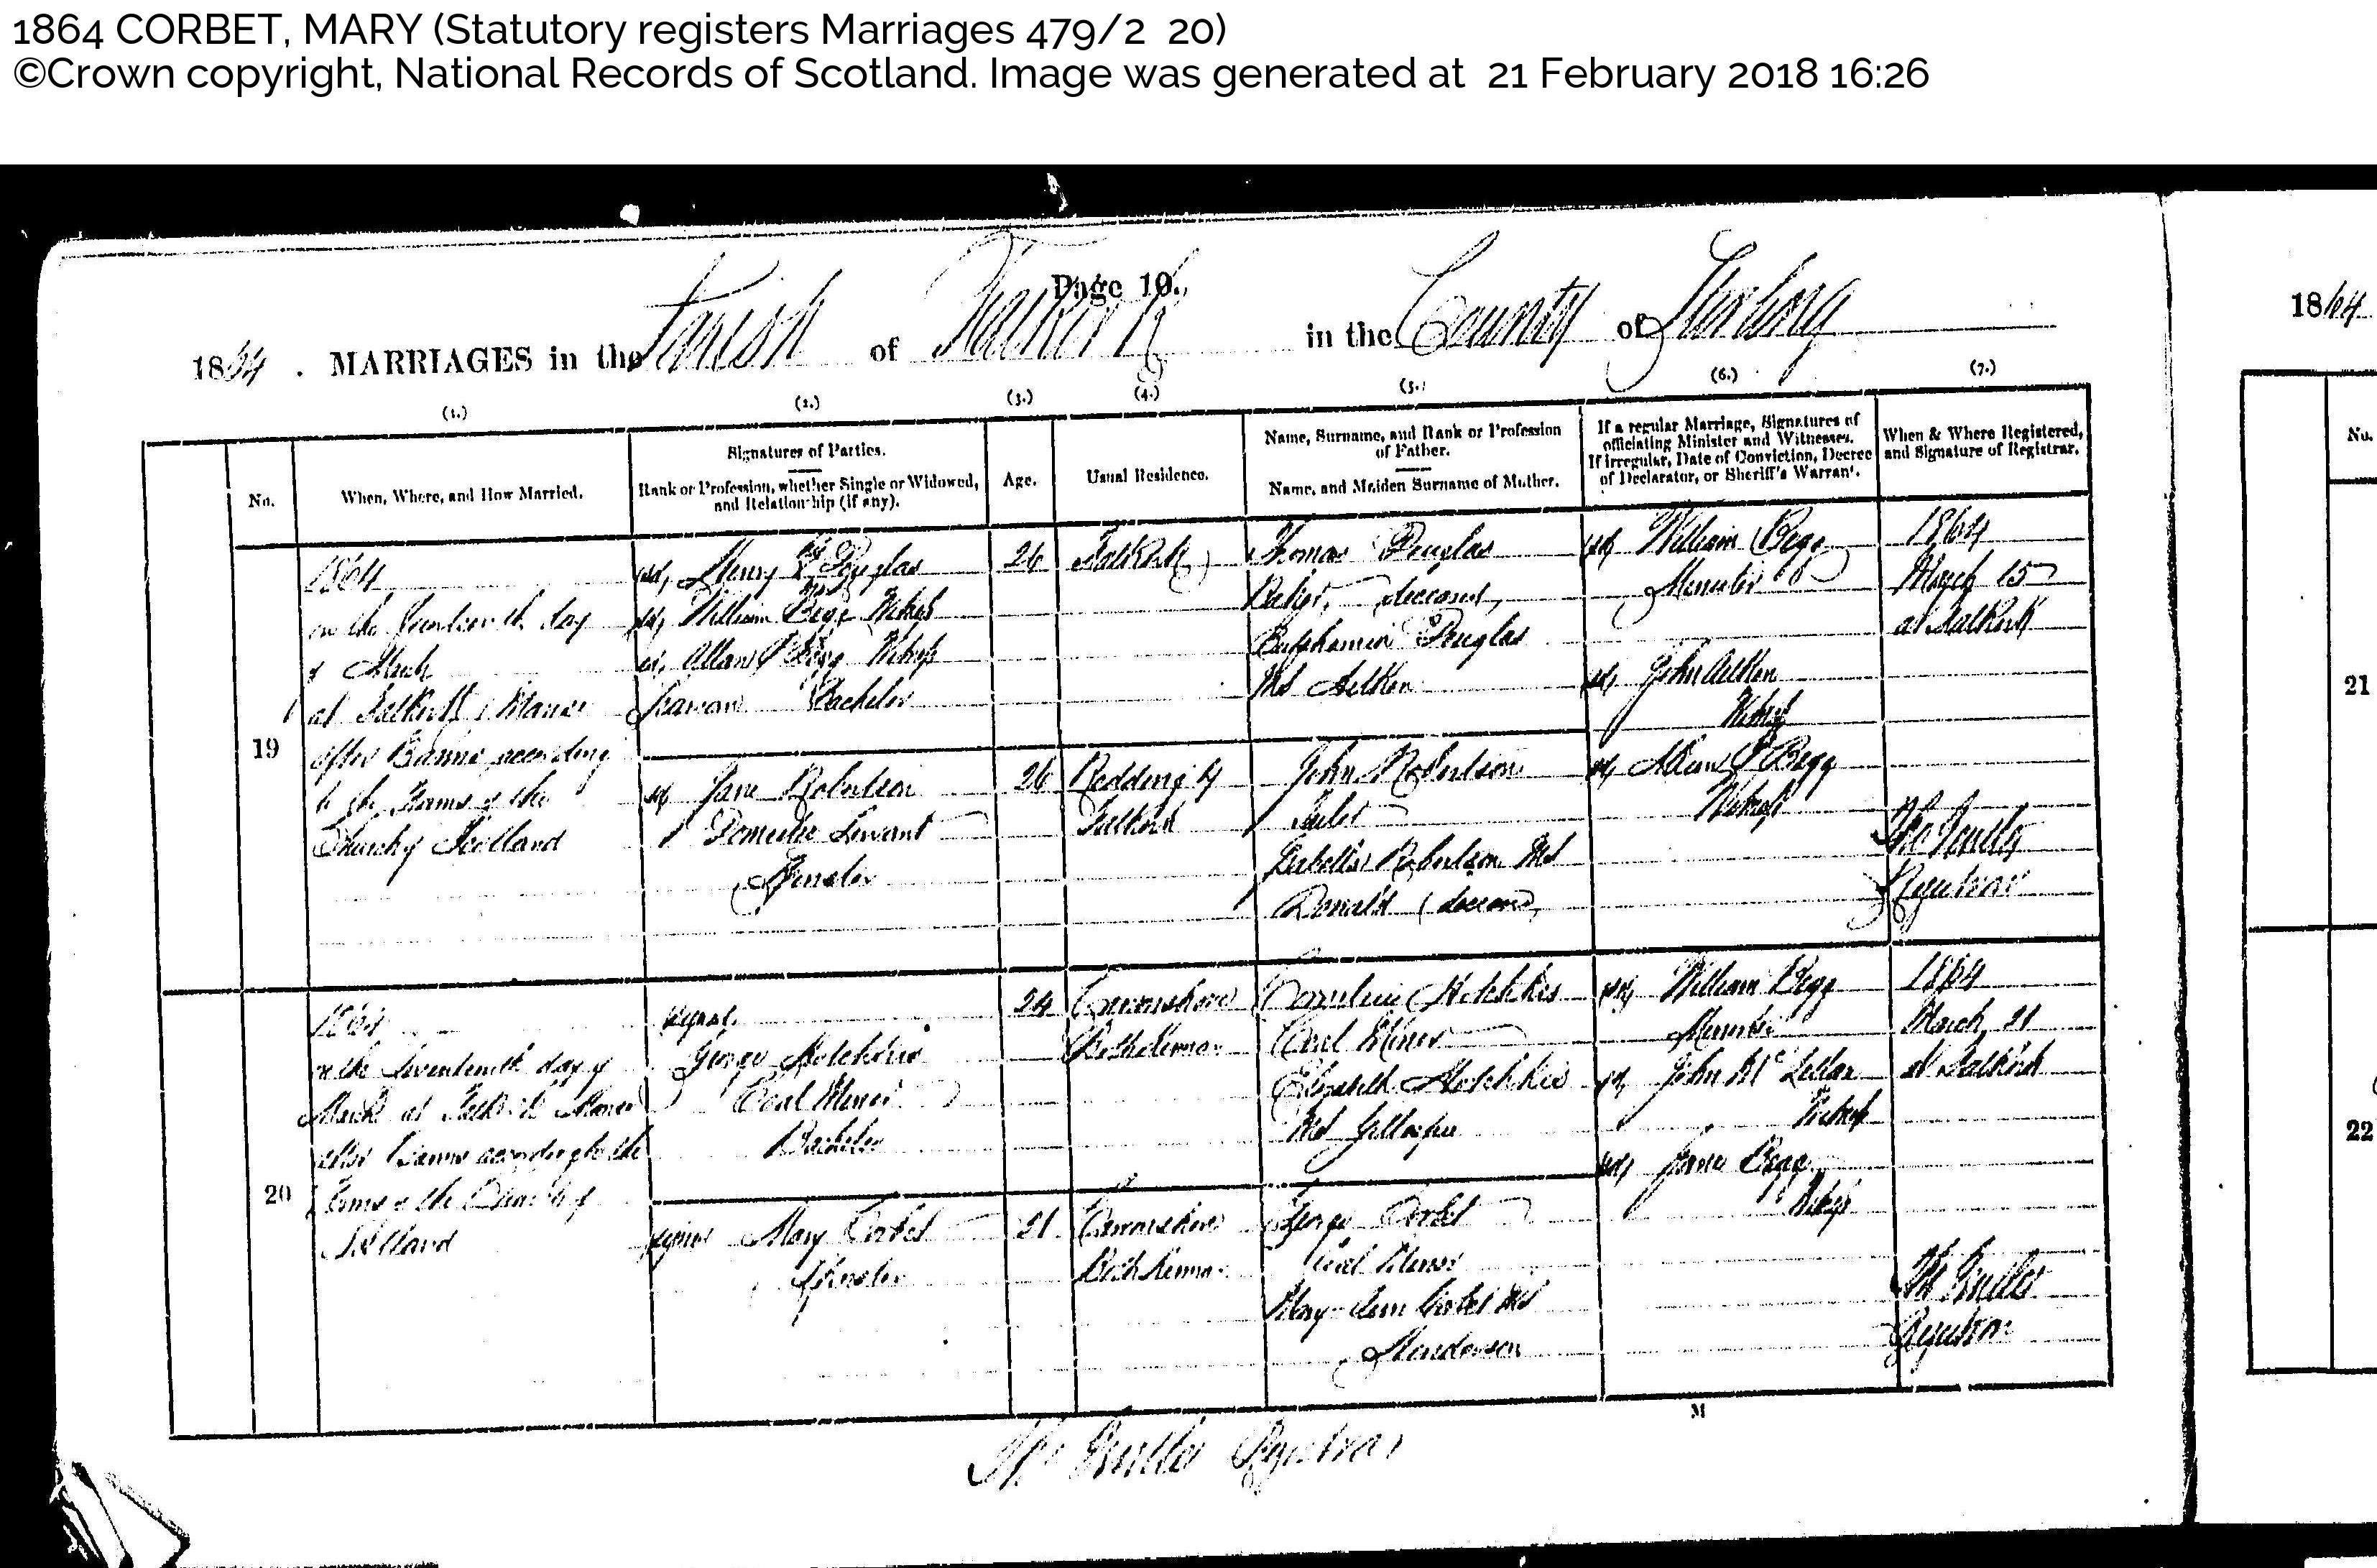 1864 CORBET, MARY (Statutory registers Marriages 479/2 20)
©Crown copyright, National Records of Scotland. Image was generated at 21 February 2018 16:26
Page 10.
1864. MARRIAGES in the Parish of Falkirk in the County of Stirling
1864
(1.) (2.) (3.) (4.) (5.) (6.) (7.)
No.
When, Where, and How Married.
Signatures of Parties.
Rank or Profession, whether Single or Widowed,
and Relationship (if any).
Age.
Usual Residence.
Name, Surname, and Rank or Profession
of Father.
Name, and Maiden Surname of Mother.
If a regular Marriage, Signatures of
officiating Minister and Witnesses.
If irregular, Date of Conviction, Decree
of Declarator, or Sheriff's Warrant.
When & Where Registered,
and Signature of Registrar.
No.
19
1864
on the day
of March
at Falkirk Manse
after Banns according
to the Forms of the
Church of Scotland
Henry Douglas
William Begg Witness
Allan Begg Witness
Bachelor
26
Falkirk
Thomas Douglas
Baker, deceased,
Euphemia Douglas
MS Aitken
William Begg
Minister
John Aitken
Witness
Begg
Witness
1864
March 15
at Falkirk
Registrar
Jane Robertson
Domestic Servant
Spinster
26
Redding by
Falkirk
John Robertson
Isabella Robertson MS
Donald (deceased)
20
1864
on the Seventeenth day of
March at Falkirk Manse
after Banns according to the
Forms of the Church of
Scotland
signed
George Hotchkiss
Coal Miner
Bachelor
24
Hotchkiss
Coal Miner
Elizabeth Hotchkiss
MS Gillespie
William Begg
Minister
John McLellan
Witness
Jane Begg
Witness
1864
March 21
at Falkirk
Registrar
signed Mary Corbet
Spinster
21
George Corbet
Coal Miner
Mary Ann Corbet MS
Henderson
M
Registrar
21
22